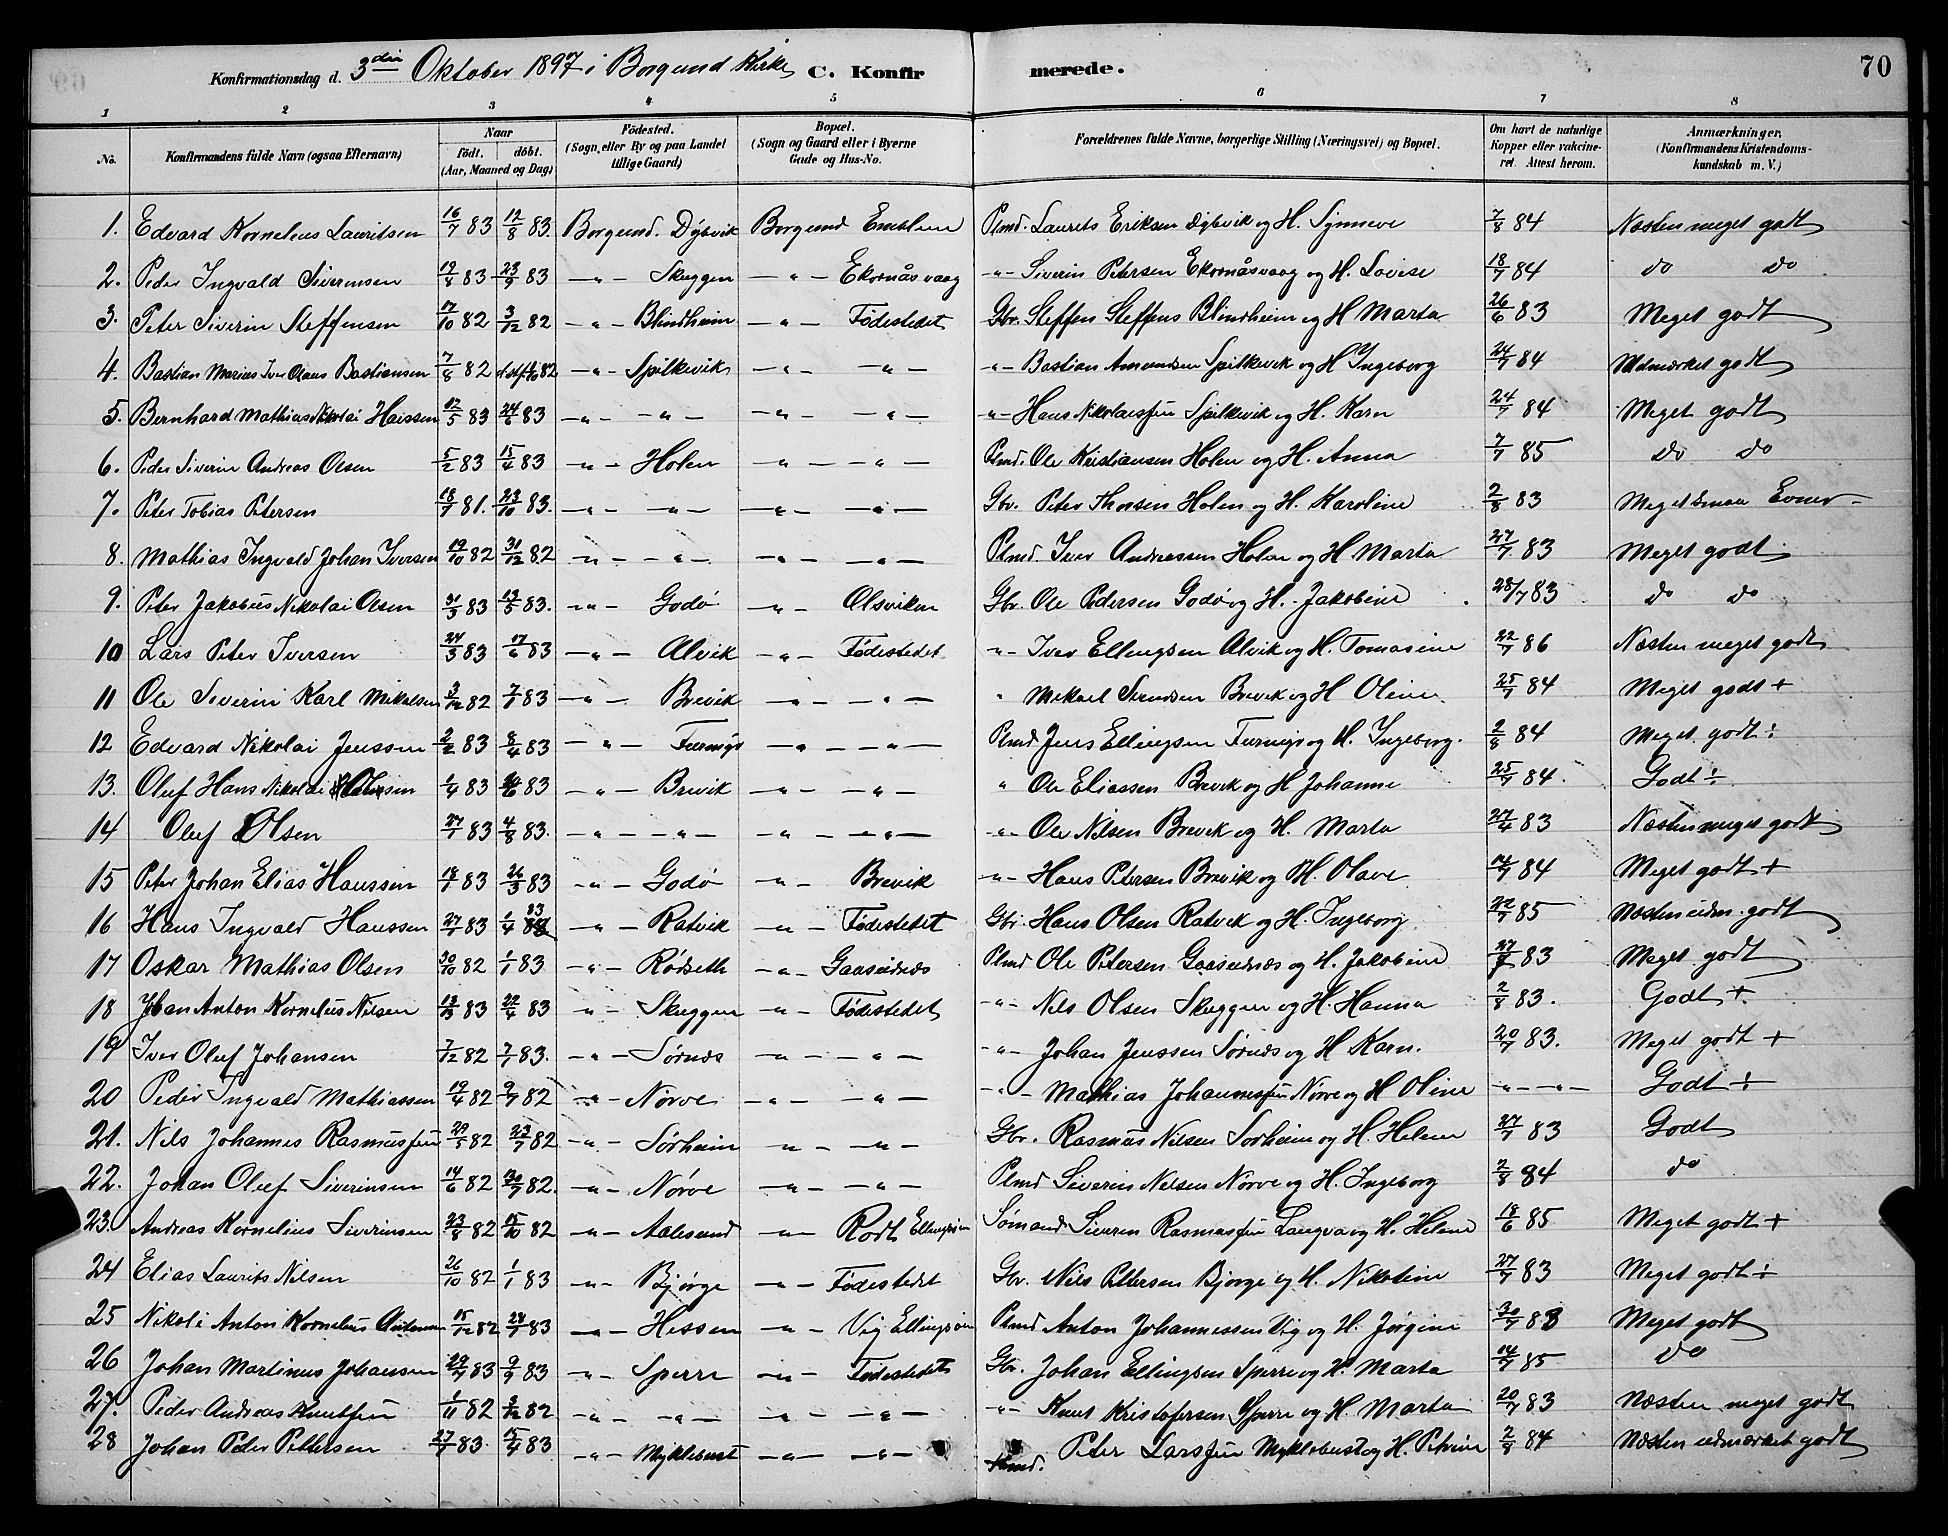 Konfirmationsdag d. 3die Oktober 1897 i Borgund Kirke C. Konfirmerede. 70
1 2 3 4 5 6 7 8
No. Konfirmandens fulde Navn (ogsaa Efternavn) Naar födt. döbt. (Aar, Maaned og Dag) Födested. (Sogn eller By og paa Landet tillige Gaard) Bopæl. (Sogn og Gaard eller i Byerne Gade og Hus-No. Forældrenes fulde Navne, borgerlige Stilling (Næringsvei) og Bopæl. Om havt de naturlige Kopper eller vakcineret. Attest herom. Anmærkninger. (Konfirmandens Kristendomskundskab m. V.)
1. Edvard Kornelius Lauritsen 16/7 83 12/8 83. Borgund. Dybvik Borgund Emblem Plmd. Laurits Eriksen Dybvik og H. Synneve 7/8 84 Næsten meget godt
2. Peder Ingvald Siverinsen 19/8 83 23/9 83 -"- Skuggen -"- Ekornåsvaag -"- Siverin Petersen Ekornåsvaag og H. Lovise 18/7 84 do do
3. Peter Siverin Steffensen 17/10 82 3/12 82 -"- Blindheim -"- Födestedet Gbr. Steffen Steffens Blindheim og H Marta 26/6 83 Meget godt
4. Bastian Marius Iver Olaus Bastiansen 7/8 82 82 -"- Spilkevik -"- -"- -"- Bastian Amundsen Spilkevik og H Ingeborg 24/7 84 Udmærket godt
5. Bernhard Mathias Nikolai Hanssen 12/5 83 24/6 83 -"- -"- -"- -"- -"- Hans Nikolaissen Spilkevik og H. Karn 24/7 84 Meget godt
6. Peder Siverin Andreas Olsen 5/2 83 15/4 83 -"- Holen -"- -"- Plmd. Ole Kristiansen Holen og H. Anna 7/7 85 do do
7. Peter Tobias Petersen 18/7 81. 23/10 83. -"- -"- -"- -"- Gbr. Peter Thorsen Holen og H. Karoline 2/8 83 Meget smaa Evner
8. Mathias Ingvald Johan Iversen 19/10 82 31/12 82 -"- -"- -"- -"- Plmd. Iver Andreassen Holen og H Marta 27/7 83 Meget godt
9. Peter Jakobus Nikolai Olsen 31/3 83 13/5 83. -"- Godö -"- Olsviken Gbr. Ole Pedersen Godö og H. Jakobine 28/7 83 do do
10 Lars Peter Iversen 24/3 83 17/6 83 -"- Alvik -"- Födestedet -"- Iver Ellingsen Alvik og H. Tomasine 22/7 86 Næsten meget godt
11 Ole Siverin Karl Mikalsen 3/12 82 7/1 83 -"- Brevik -"- -"- " Mikael Brevik og H Oline 25/7 84 Meget godt +
12 Edvard Nikolai Jenssen 2/2 83 8/4 83 -"- -"- -"- Plmd Jens Ellingsen og H. Ingeborg. 2/8 84 Meget godt ÷
13. Oluf Hans Nikolai 1/4 83 83 -"- Brevik -"- -"- " Ole Eliassen Brevik og H Johanne 25/7 84. Godt ÷
14 Oluf Olsen 27/1 83 4/8 83. -"- -"- -"- -"- -"- Ole Nilsen Brevik og H. Marta 27/4 83 Næsten meget godt
15 Peter Johan Elias Hanssen 18/1 83 26/3 83 -"- Godö -"- Brevik -"- Hans Petersen Brevik og H. Olave 14/7 84 Meget godt +
16 Hans Ingvald Hanssen 27/1 83 1/4 83 -"- Ratvik -"- Födestedet Gbr. Hans Olsen Ratvik og H. Ingeborg 22/7 85 Næsten udm. godt
17 Oskar Mathias Olsen 30/10 82 1/1 83 -"- Rödseth -"- Gaaseidnæs Plmd Ole Petersen Gaaseidnæs og H. Jakobine 27/7 83 Meget godt
18 Johan Anton Kornelius Nilsen 83 22/4 83 -"- Skuggen -"- Födestedet -"- Nils Olsen Skuggen og H. Hanna 2/8 83. Godt +
19 Iver Oluf Johansen 7/12 82 7/1 83. -"- Sörnæs -"- -"- -"- Johan Jenssen Sörnæs og H Karn. 20/7 83. Meget godt +
20 Peder Ingvald Mathiassen 19/4 82 9/7 82 -"- Nörve -"- -"- -"- Mathias Johannessen Nörve og H Oline -"- -"- Godt ÷
21. Nils Johannes Rasmussen 29/5 82 23/7 82 -"- Sörheim -"- -"- Gbr. Rasmus Nilsen Sorheim og H. Helene 27/7 83 Godt
22. Johan Oluf Siverinsen 14/6 82 30/7 82. -"- Nörve -"- -"- Plmd Siverin Nilsen Nörve og H. Ingeborg 2/8 84 do
23. Andreas Kornelius Siverinsen 23/8 82 15/10 82 -"- Aalesund -"- Rödt Ellingsöen Sömand Siveren Rasmussen Langva og H. Helene 18/6 85 Meget godt +
24 Elias Laurits Nilsen 26/10 82 1/1 83 -"- Bjørge -"- Födestedet Gbr. Nils Pettersen Bjorge og H. Nikoline 27/7 83 Meget godt ÷
25 Nikoli Anton Kornelius 15/12 82 28/1 83 -"- Hessen -"- Vig Ellingsöen Plmd Anton Johannessen Vig og H. Jörgine 30/7 83 Meget godt
26 Johan Martinus Johanssen 29/7 83 9/9 83 -"- Sperre -"- Födestedet Gbr. Johan Ellingsen Sperre og H. Marta 14/7 85 do
27. Peder Andreas Knutsen 1/11 82 3/12 82 -"- -"- -"- -"- -"- Knut Kristofersen Sperre og H. Marta 20/7 83 Næsten meget godt
28 Johan Peder Pettersen 27/1 83. 15/4 83 -"- Myklebust -"- -"- Plmd. Peter Larssen Myklebust og H. Petrine 2/8 84 Næsten udmærket godt